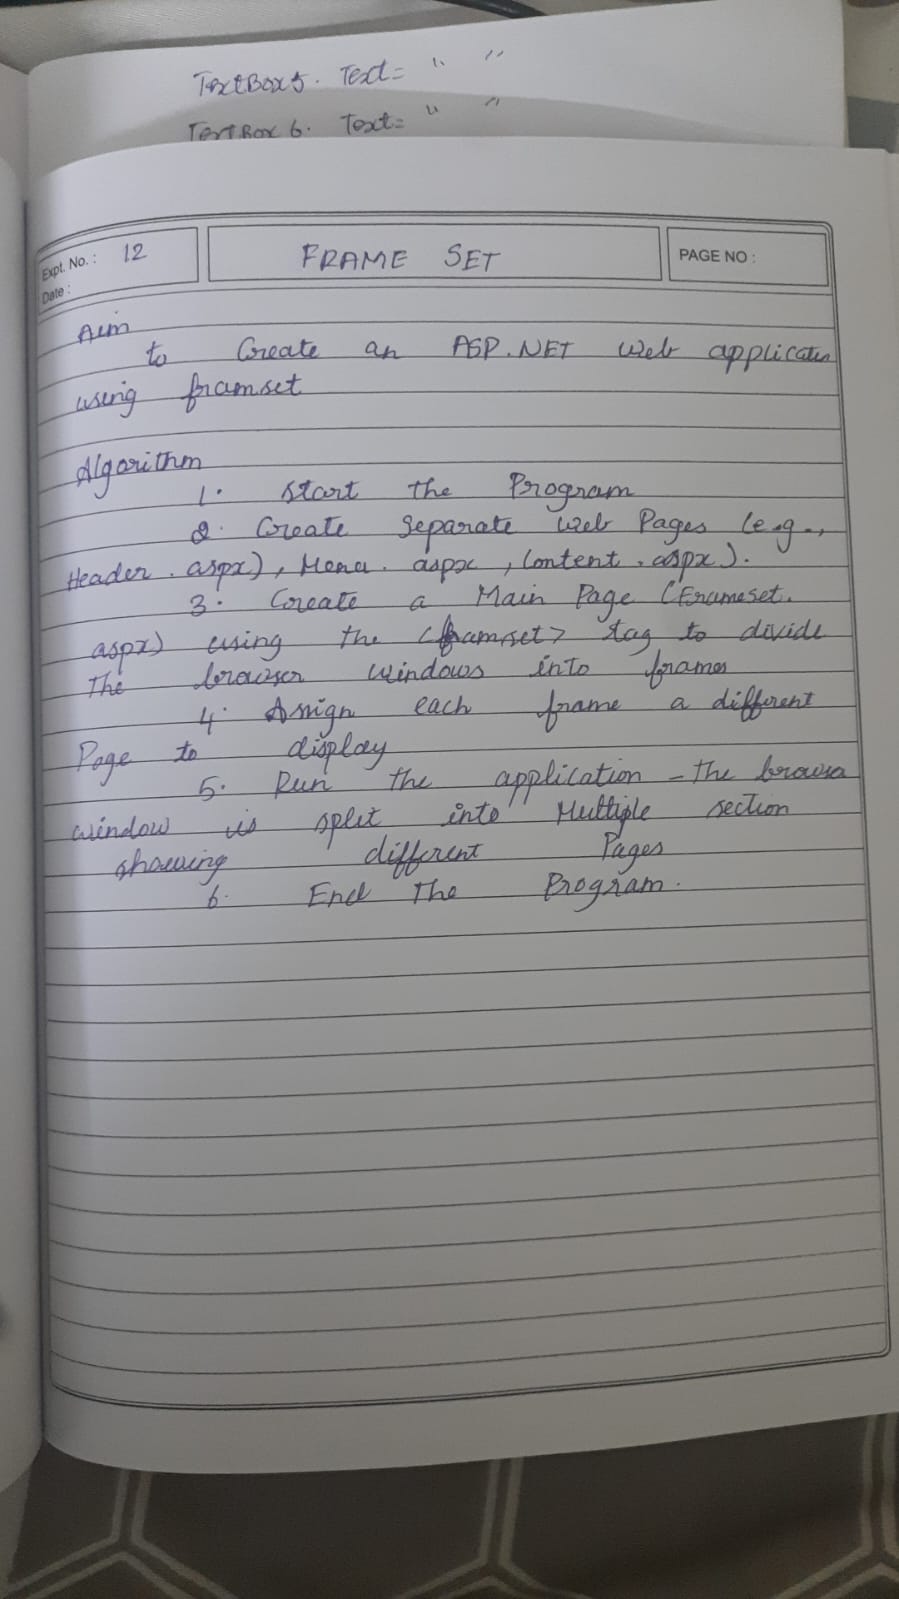 TextBox5. Text= " "
TextBox 6. Text= " "
Expt. No. : 12
FRAME SET
PAGE NO :
Date :
Aim
to Create an ASP.NET Web application
using framset
Algorithm
1. Start the Program
2. Create Separate Web Pages (e.g.,
Header.aspx), Menu.aspx, Content.aspx).
3. Create a Main Page (Frameset.
aspx) using the <framset> tag to divide
The browser windows into frames
4. Assign each frame a different
Page to display
5. Run the application - The browser
window is split into Multiple section
showing different Pages
6. End The Program.